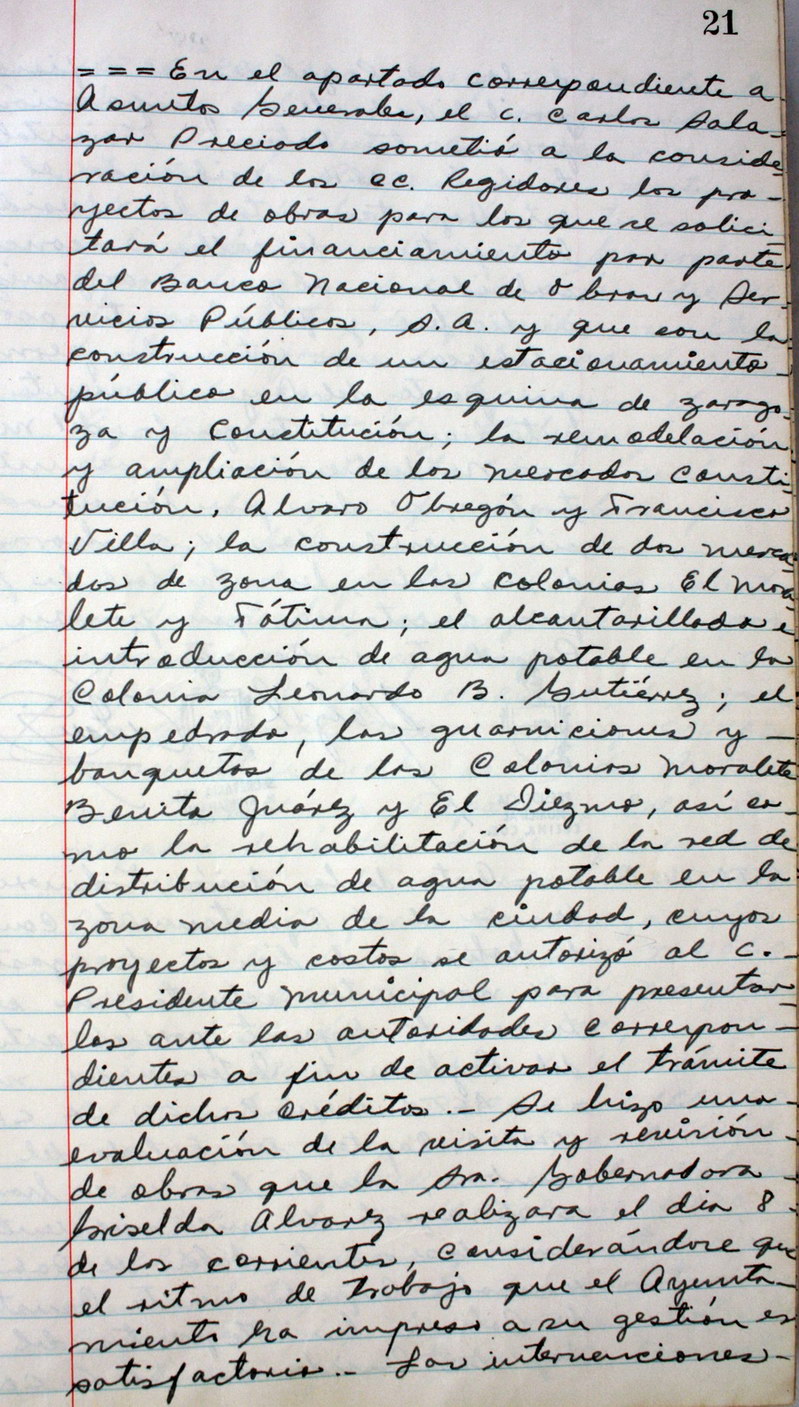 21
= = = En el apartado correspondiente a
Asuntos Generales, el C. Carlos Sala-
zar Preciado sometió a la conside-
ración de los CC. Regidores los pro-
yectos de obras para los que se solici-
tará el financiamiento por parte
del Banco Nacional de Obras y Ser-
vicios Públicos, S.A. y que son la
construcción de un estacionamiento
público en la esquina de Zarago-
za y Constitución; la remodelación
y ampliación de los mercados Consti-
tución, Alvaro Obregón y Francisco
Villa; la construcción de dos merca-
dos de zona en las colonias El Mora-
lete y Fátima; el alcantarillado e
introducción de agua potable en la
Colonia Leonardo B. Gutiérrez; el
empedrado, las guarniciones y -
banquetas de las Colonias Moralete
Benito Juárez y El Diezmo, así co-
mo la rehabilitación de la red de
distribución de agua potable en la
zona media de la ciudad, cuyos
proyectos y costos se autorizó al C. -
Presidente Municipal para presentar-
los ante las autoridades correspon-
dientes a fin de activar el trámite
de dichos créditos. - Se hizo una -
evaluación de la visita y revisión -
de obras que la Sra. Gobernadora -
Griselda Alvarez realizara el dia 8 -
de los corrientes, considerándose que
el ritmo de trabajo que el Ayunta-
miento ha impreso a su gestión es
satisfactorio. - Las intervenciones -